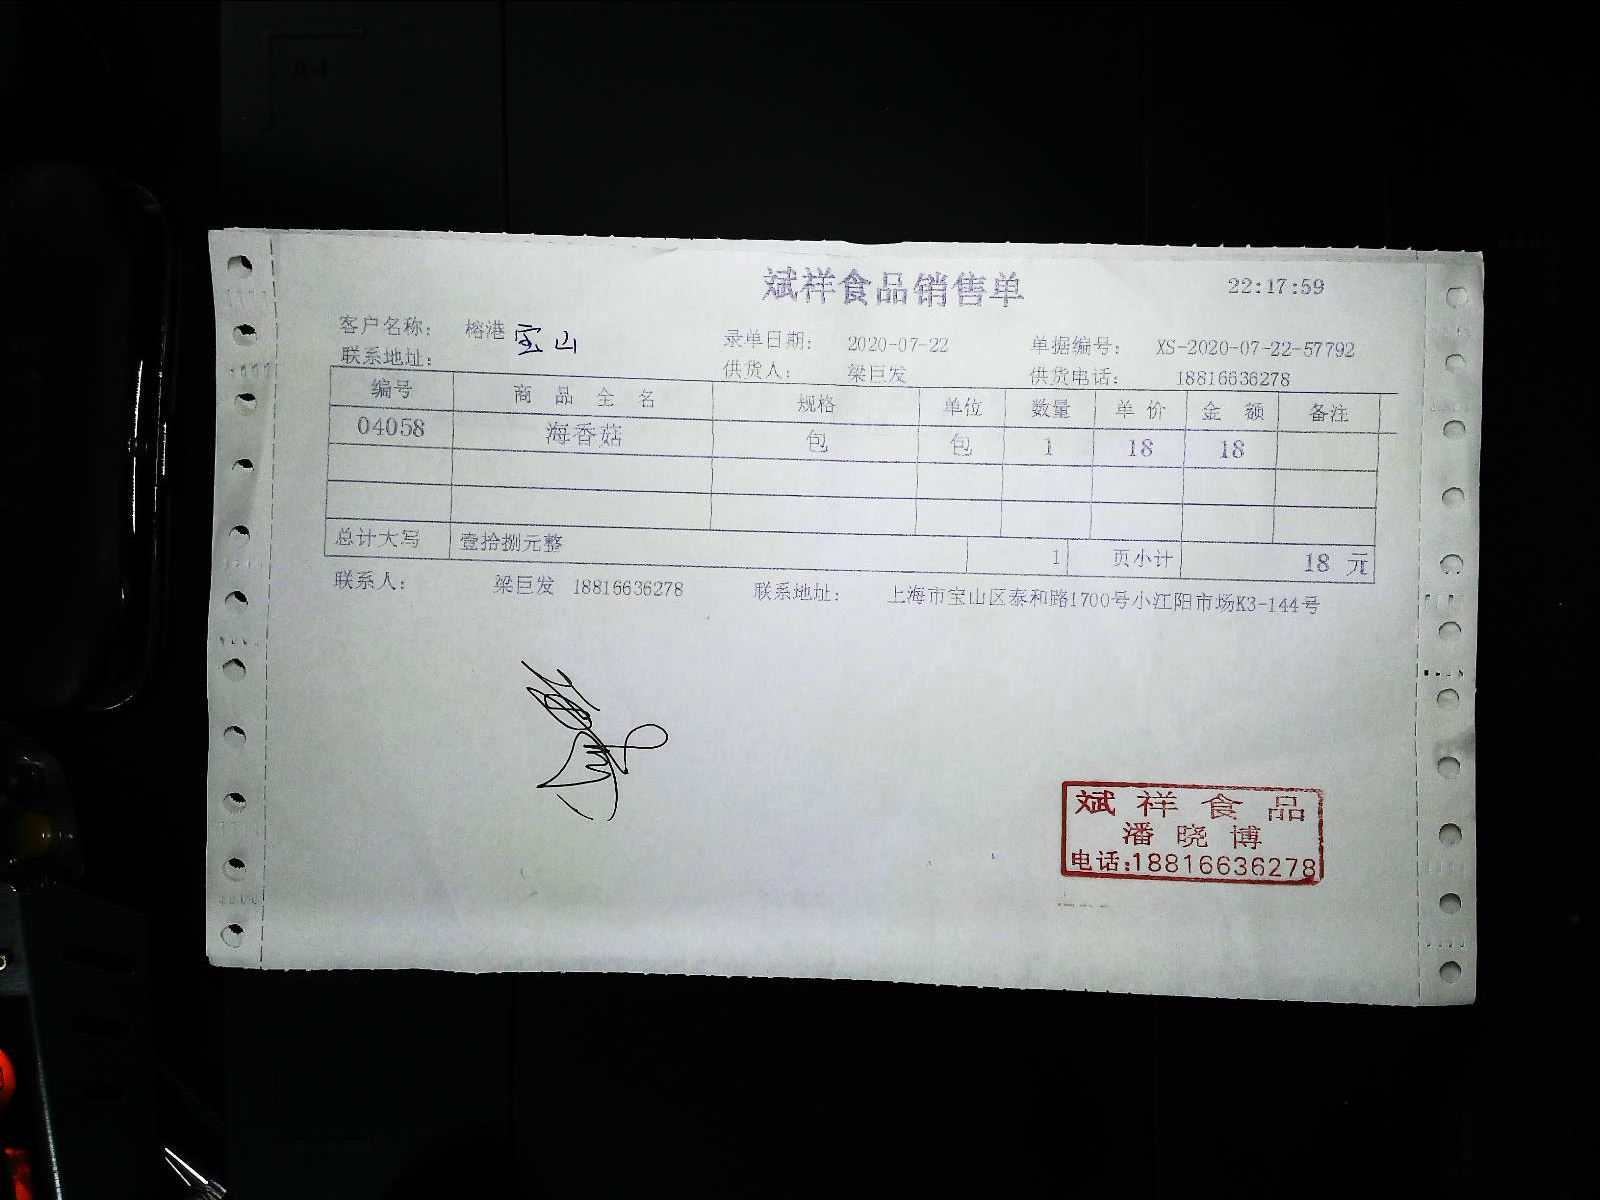 斌祥食品销售单 22:17:59
客户名称： 榕港 宝山 录单日期： 2020-07-22 单据编号： XS-2020-07-22-57792
联系地址： 供货人： 梁巨发 供货电话： 18816636278
编号 商品全名 规格 单位 数量 单价 金额 备注
04058 海香菇 包 包 1 18 18
总计大写 壹拾捌元整 1 页小计 18 元
联系人： 梁巨发 18816636278 联系地址： 上海市宝山区泰和路1700号小江阳市场K3-144号
斌祥食品
潘晓博
电话:18816636278